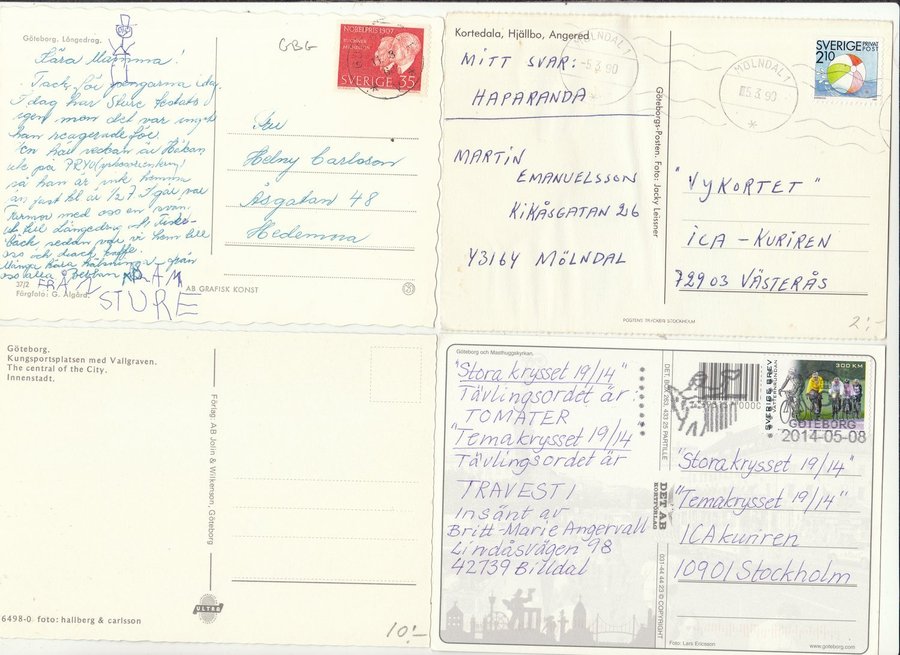 Göteborg. Långedrag.
Kära Mamma!
Tack för pengarna idag.
I dag har Sture testats
igen men det var
han reagerade för.
En hel veckan är Håkan
ute på PRYO
så han är ink hemma
än just kl. är 1/2 7. I går var
Turmor med oss en sväng
ut till Långedrag och Fiske-
bäck, sedan var vi hem till
oss och drack kaffe.
Många kära hälsningar från
oss alla
FRÅN
STURE
37/2
Färgfoto: G. Algård.
AB GRAFISK KONST
GBG
NOBELPRIS 1907
BUCHNER
MICHELSON
SVERIGE 35
Fru
Helny Carlsson
Åsgatan 48
Hedemora
Kortedala, Hjällbo, Angered
MITT SVAR:
HAPARANDA
MARTIN
EMANUELSSON
KIKÅSGATAN 26
43164 MÖLNDAL
Göteborgs-Posten. Foto: Jocky Leissner
MÖLNDAL 1
-5.3.90
MÖLNDAL 1
-5.3.90
SVERIGE PRIVAT POST
2.10
"VYKORTET"
ICA-KURIREN
72903 VÄSTERÅS
POSTENS TRYCKERI STOCKHOLM
2:-
Göteborg.
Kungsportsplatsen med Vallgraven.
The central of the City.
Innenstadt.
Förlag: AB Jolin & Wilkenson, Göteborg
ULTRA
6498-0 foto: hallberg & carlsson
10:-
Göteborg och Masthuggskyrkan.
"Stora krysset 19/14"
Tävlingsordet är
TOMATER
"Temakrysset 19/14
Tävlingsordet är
TRAVESTI
Insänt av
Britt-Marie Angervall
Lindåsvägen 98
42739 Billdal
DET, BOX 263, 433 25 PARTILLE
DET AB
KORTFÖRLAG
031-44 44 23 © COPYRIGHT
SVERIGE BREV
VÄTTERNRUNDAN
300 KM
GÖTEBORG
2014-05-08
"Stora krysset 19/14"
"Temakrysset 19/14"
ICA kuriren
10901 Stockholm
Foto: Lars Ericsson
www.goteborg.com